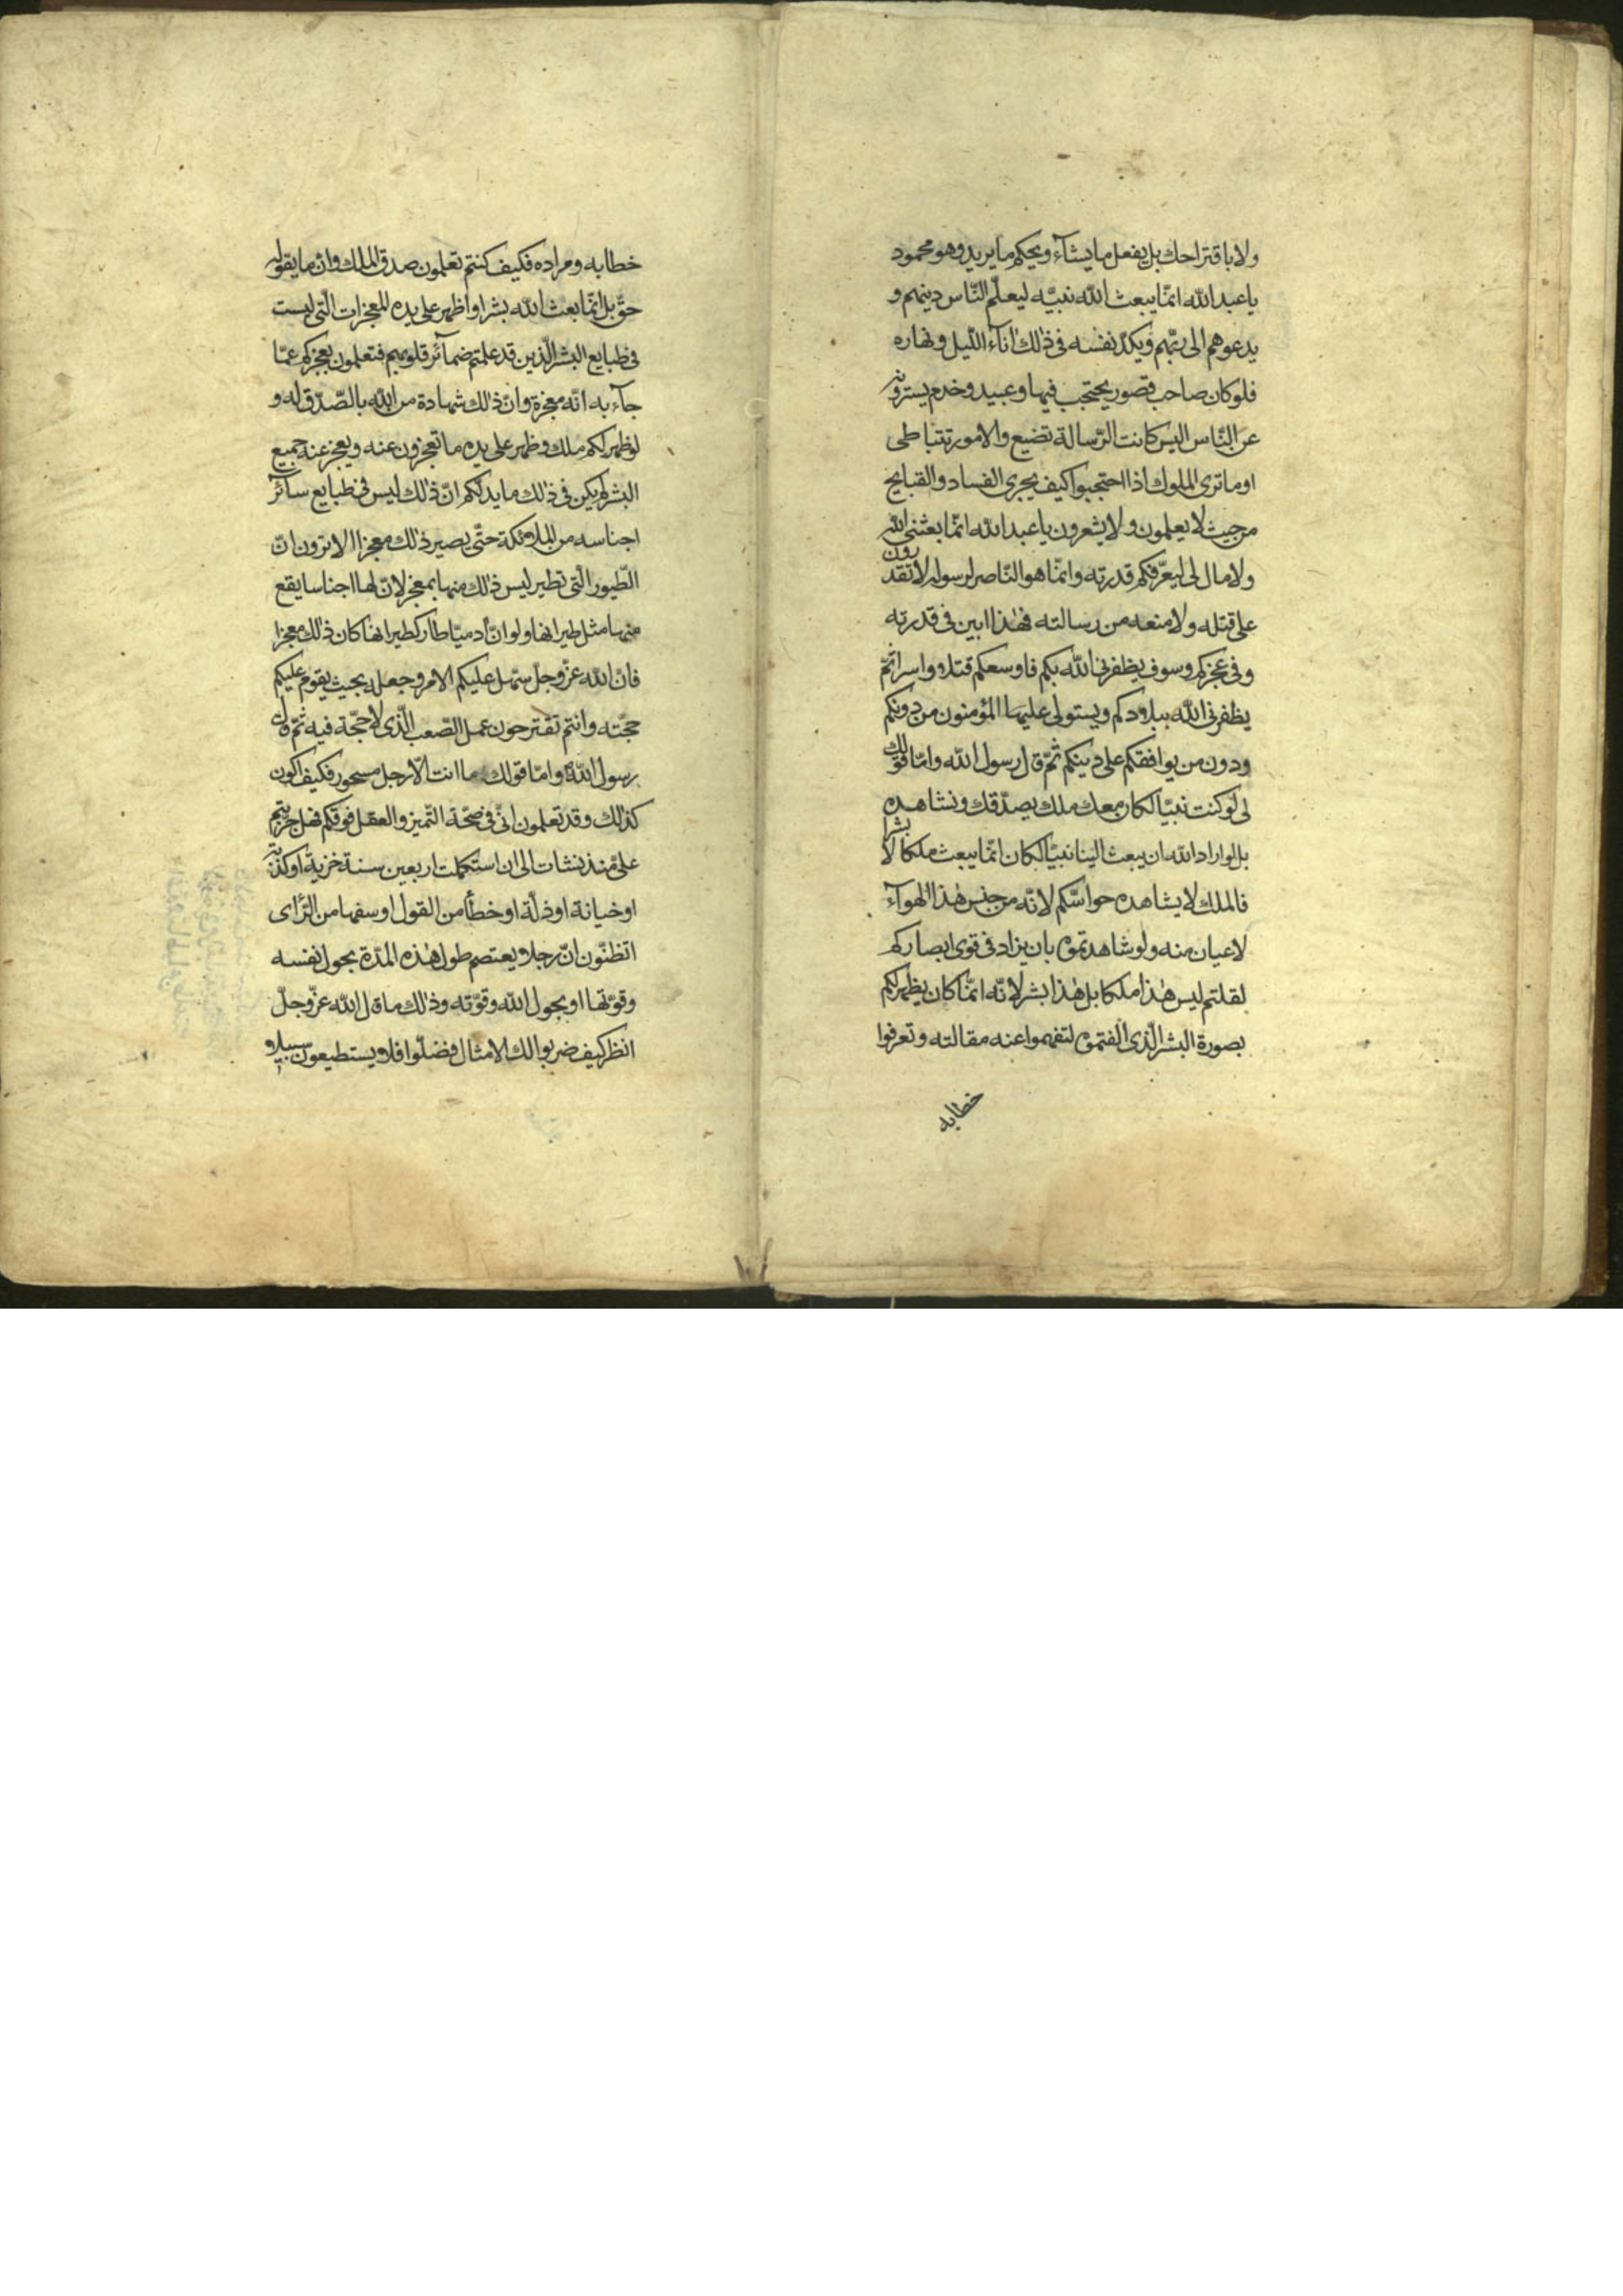 ولا باقتراحك بل يفعل ما يشآء ويحكم ما يريد وهو محمود
يا عبد الله انّما يبعث الله نبيّه ليعلّم النّاس دينهم و
يدعوهم الى ربّهم ويكدّ نفسه فى ذلك اناآء اللّيل ونهاره
فلو كان صاحب قصور يحتجب فيها وعبيد وخدم يسترونه
عن النّاس اليس كانت الرّسالة تضيع والامور تتباطى
او ما ترى الملوك اذا احتجبوا كيف يجرى الفساد والقبايح
من حيث لا يعلمون ولا يشعرون يا عبد الله انّما بعثنى الله
ولا مال لى ليعرّفكم قدرته وانّما هو النّاصر لرسوله لا تقدرون
على قتله ولا منعه من رسالته فهذا ابين فى قدرته
وفى عجزكم وسوف يظفرنى الله بكم فاوسعكم قتلا واسرا ثمّ
يظفرنى الله ببلادكم ويستولى عليها المؤمنون من دونكم
ودون من يوافقكم على دينكم ثمّ قال رسول الله وامّا قولك
لى لو كنت نبيّا لكان معك ملك يصدّقك ونشاهده
بل لو اراد الله ان يبعث الينا نبيّا لكان انّما يبعث ملكا لا بشرا
فالملك لا يشاهده حواسّكم لانّه من جنس هذا الهوآء
لا عيان منه ولو شاهدتموه بان يزاد فى قوى ابصاركم
لقلتم ليس هذا ملكا بل هذا بشر لانّه انّما كان يظهر لكم
بصورة البشر الّذى الفتموه لتفهموا عنه مقالته وتعرفوا
خطابه
خطابه ومراده فكيف كنتم تعلمون صدق الملك وان ما يقوله
حقّ بل انّما بعث الله بشرا واظهر على يده المعجزات الّتى ليست
فى طبايع البشر الّذين قد علمتم ضمآئر قلوبهم فتعلمون بعجزكم عمّا
جآء به انّه معجزة وانّ ذلك شهادة من الله بالصّدق له و
لو ظهر لكم ملك وظهر على يده ما تعجزون عنه ويعجز عنه جميع
البشر لم يكن فى ذلك ما يدلكم انّ ذلك ليس فى طبايع سآئر
اجناسه من الملائكة حتّى يصير ذلك معجزا الا ترون انّ
الطّيور الّتى تطير ليس ذلك منها بمعجز لانّ لها اجناسا يقع
منها مثل طيرانها ولو انّ آدميّا طار كطيرانها كان ذلك معجزا
فانّ الله عزّ وجلّ سهّل عليكم الامر وجعله بحيث يقوم عليكم
حجّته وانتم تقترحون عمل الصّعب الّذى لا حجّة فيه ثمّ قال
رسول الله وامّا قولك ما انت الّا رجل مسحور فكيف اكون
كذلك وقد تعلمون انّى فى صحّة التّميز والعقل فوقكم فهل جربتم
علىّ منذ نشات الى ان استكملت اربعين سنة خزية او كذبة
او خيانة او ذلّة او خطأ من القول او سفها من الرّاى
اتظنّون انّ رجلا يعتصم طول هذه المدّة بحول نفسه
وقوّتها او بحول الله وقوّته وذلك ما قال الله عزّ وجلّ
انظر كيف ضربوا لك الامثال فضلّوا فلا يستطيعون سبيلا